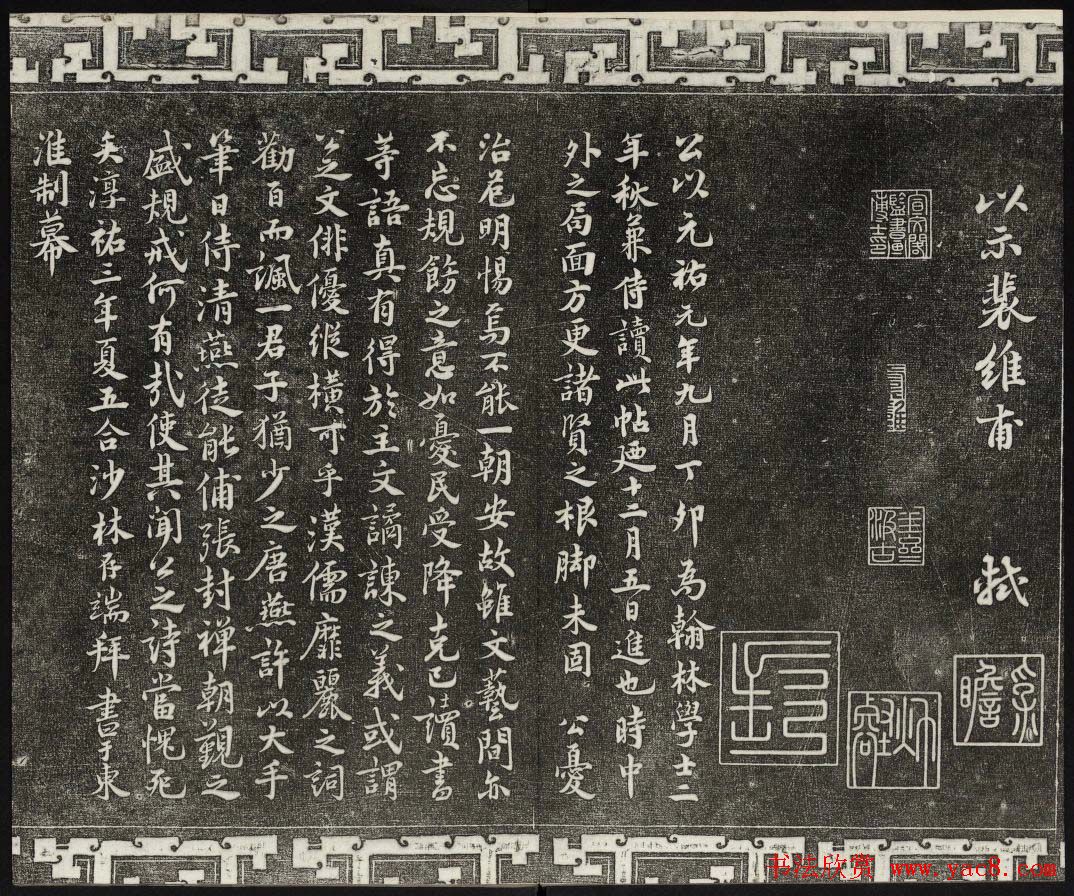 以示裴維甫 軾
公以元祐元年九月丁卯為翰林學士二
年秋兼侍讀此帖廼十二月五日進也時中
外之局面方更諸賢之根脚未固 公憂
治危明惕焉不能一朝安故雖文藝間亦
不忘規飭之意如憂民受降克己讀書
等語真有得於主文譎諫之義或謂
公之文俳優縱橫可乎漢儒靡麗之詞
勸百而諷一君子猶少之唐燕許以大手
筆日侍清燕徒能鋪張封禪朝覲之
盛規戒何有哉使其聞公之詩當愧死
矣淳祐三年夏五合沙林存端拜書于東
淮制幕
子瞻
书法欣赏 www.yac8.com